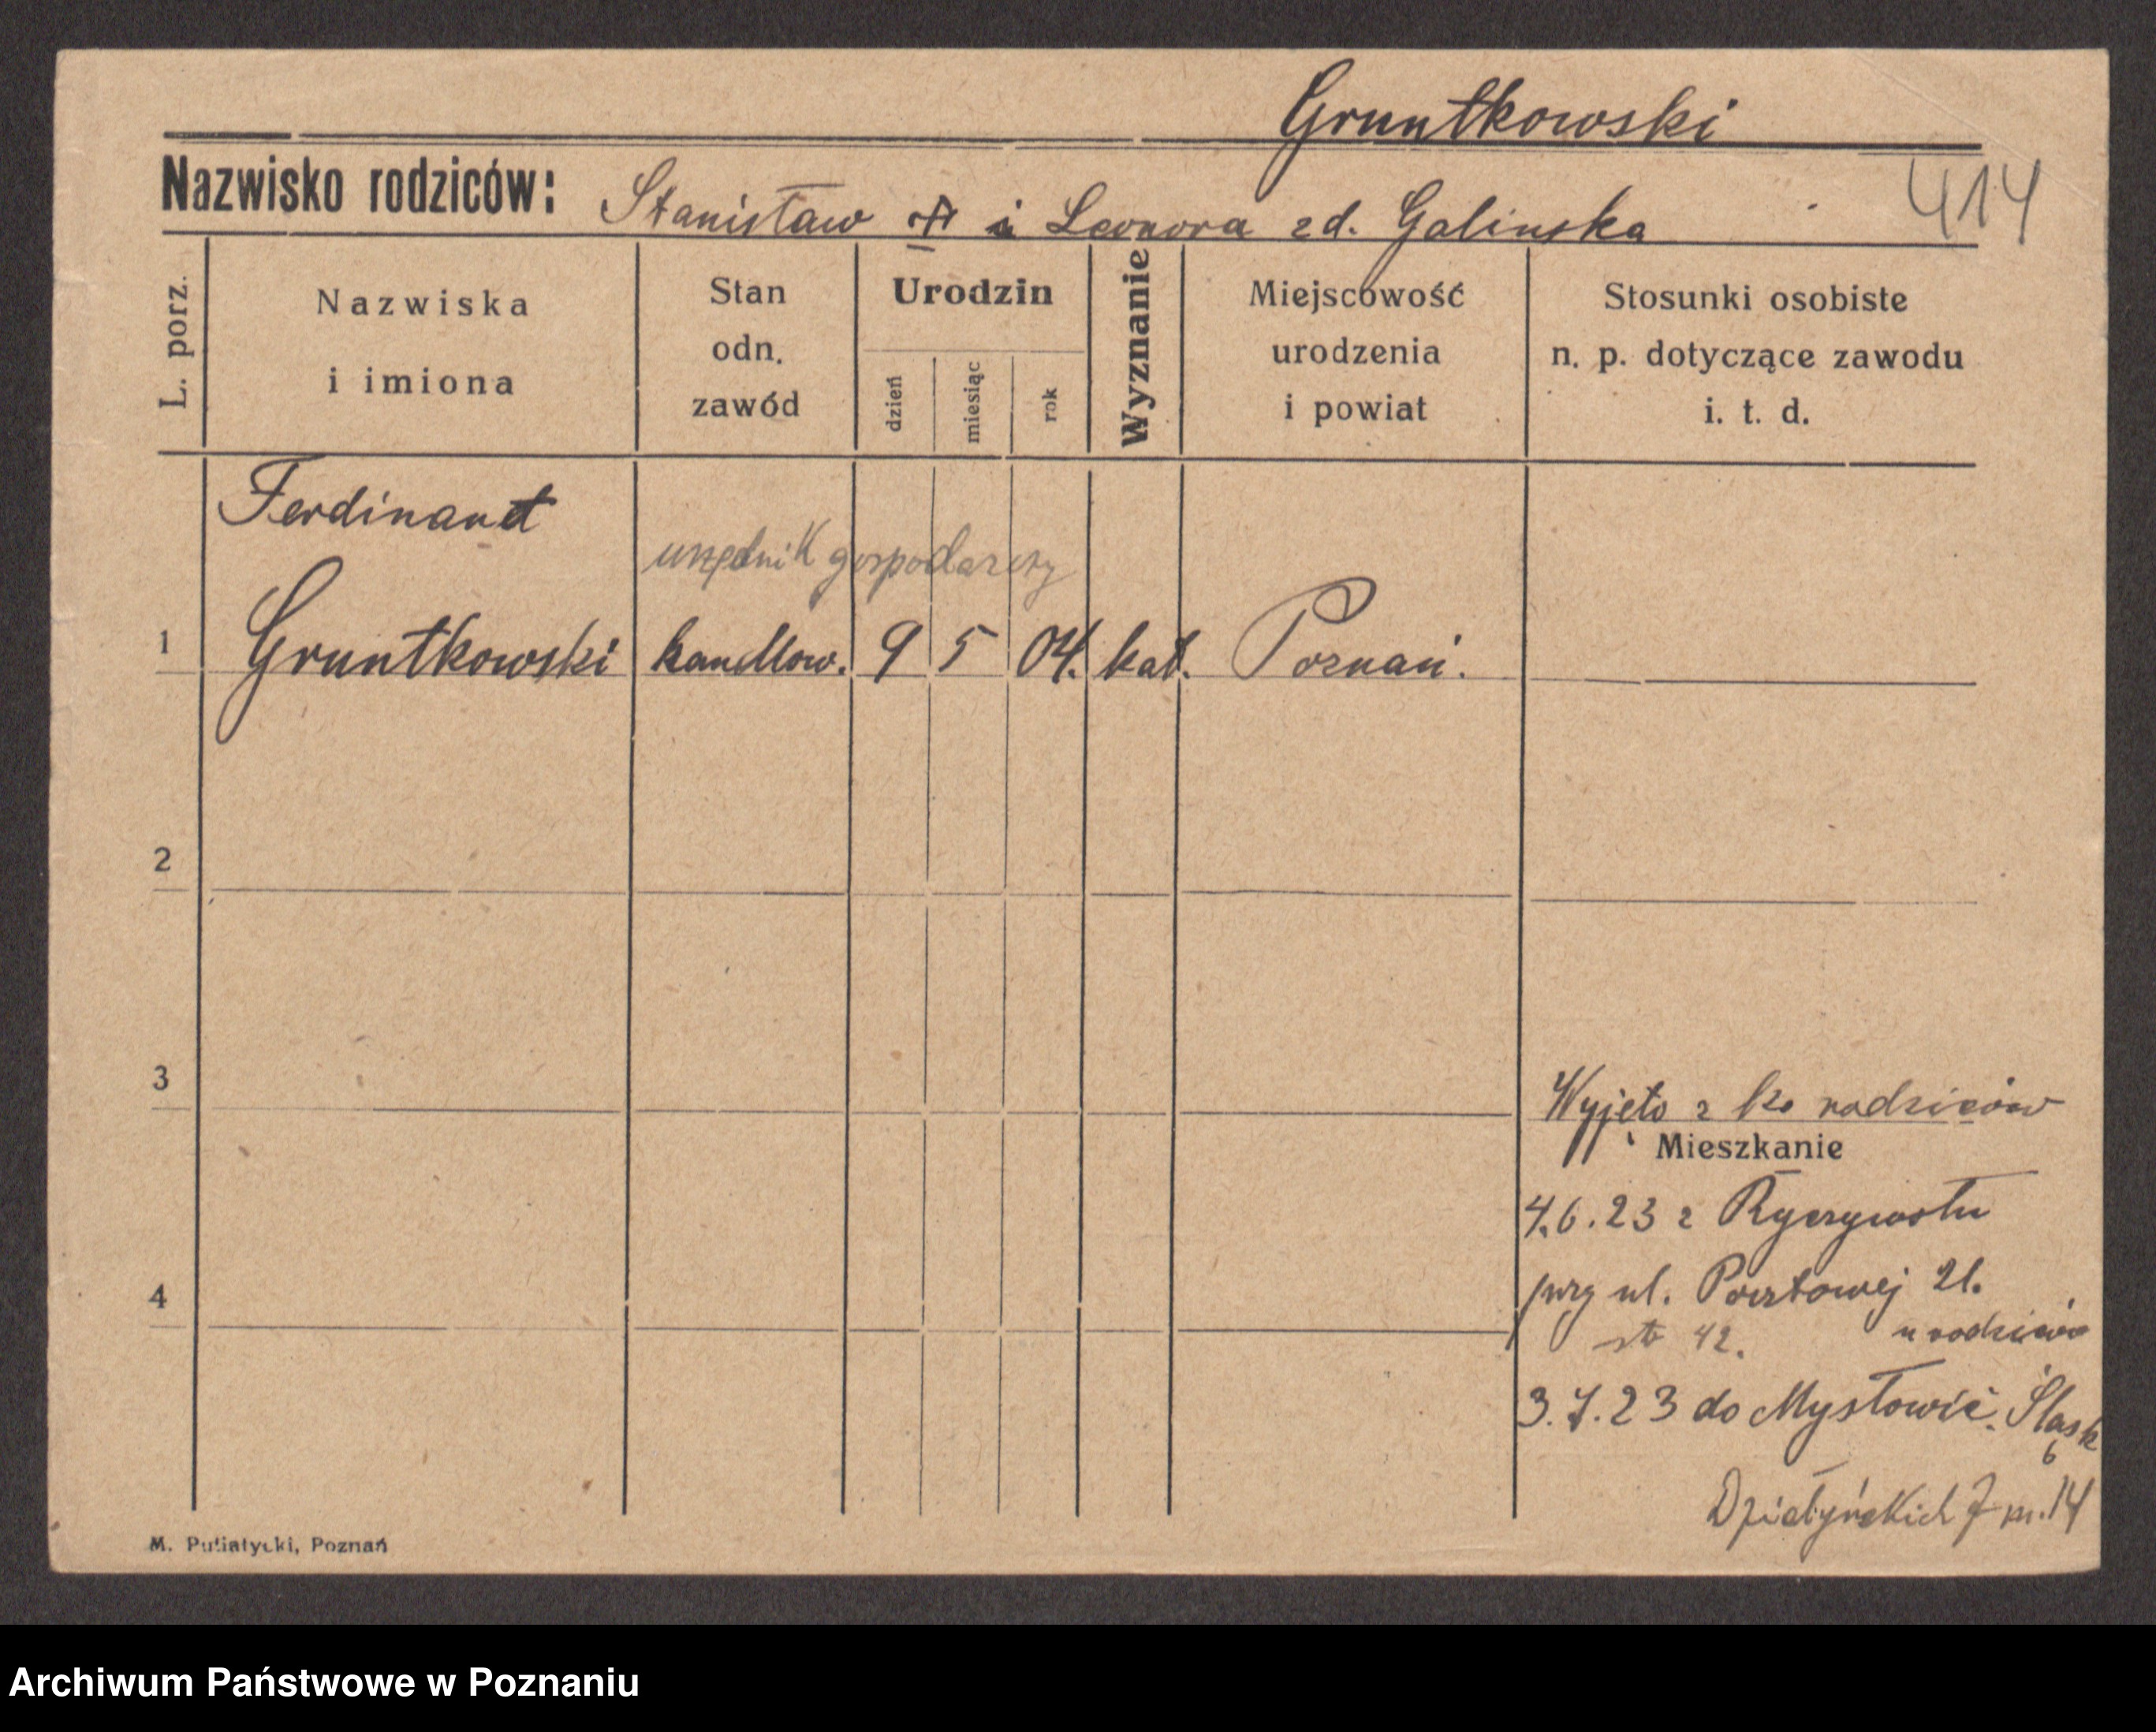 Gruntkowski
Nazwisko rodziców: Stanisław i Leonora zd. Galinska
414
L. porz.
Nazwiska
i imiona
Stan
odn.
zawód
Urodzin
dzień
miesiąc
rok
Wyznanie
Miejscowość
urodzenia
i powiat
Stosunki osobiste
n. p. dotyczące zawodu
i. t. d.
Ferdinand
urzędnik gospodarczy
1 Gruntkowski handlow. 9 5 04. kat. Poznań.
2
3
Wyjęto z ko rodziców
Mieszkanie
4.6.23 z Ryczywołu
4
przy ul. Pocztowej 21.
42. u rodziców
3.7.23 do Mysłowic. Śląsk
Działyńskich 7 m. 14
M. Putiatycki, Poznań
Archiwum Państwowe w Poznaniu